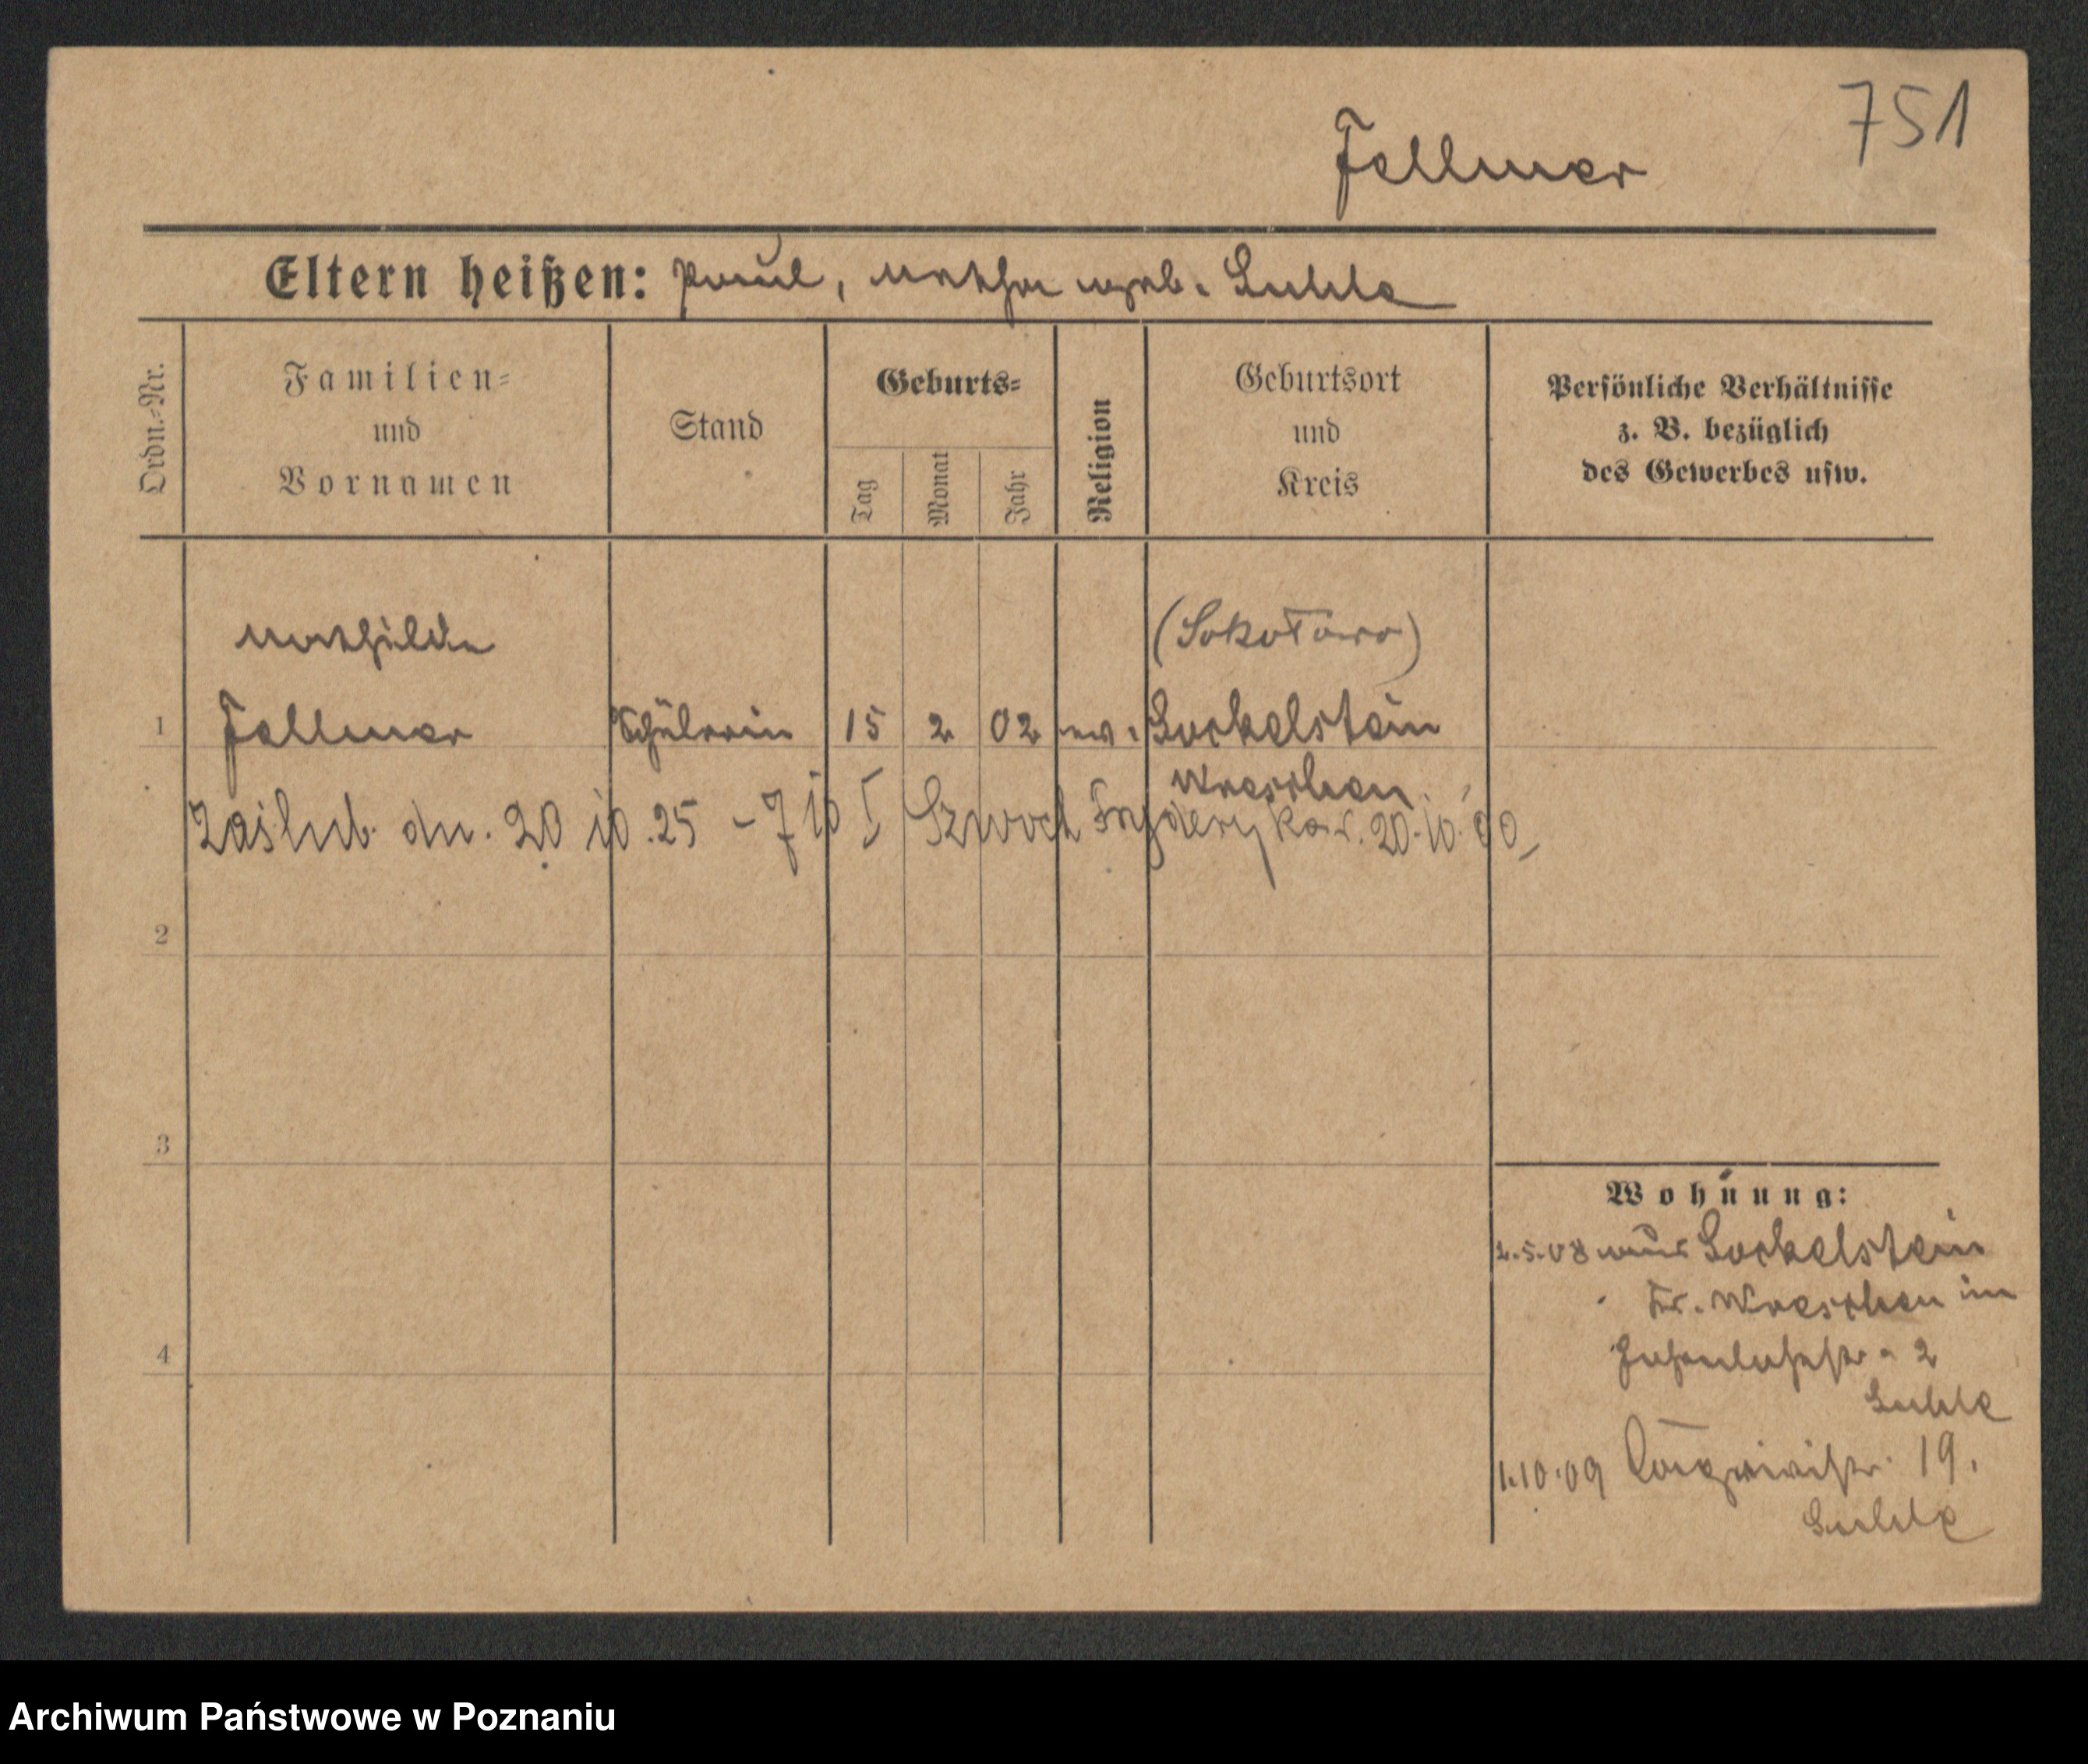 751
Fellmer
Eltern heißen: Paul, Martha geb. Suhle
Ordn.-Nr.
Familien-
und
Vornamen
Stand
Geburts-
Tag
Monat
Jahr
Religion
Geburtsort
und
Kreis
Persönliche Verhältnisse
z. B. bezüglich
des Gewerbes usw.
Mathilde
(Sokołowo)
1 Fellmer Schülerin 15 2 02 ev. Sockelstein
Wreschen
Zaślub. dn. 20 10.25 - 710 I Szwoch Fryderyka ur. 20.10.00
2
3
4
Wohnung:
2.5.08 aus Sockelstein
Kr. Wreschen im
2
Suhle
1.10.09 19.
Suhle
Archiwum Państwowe w Poznaniu